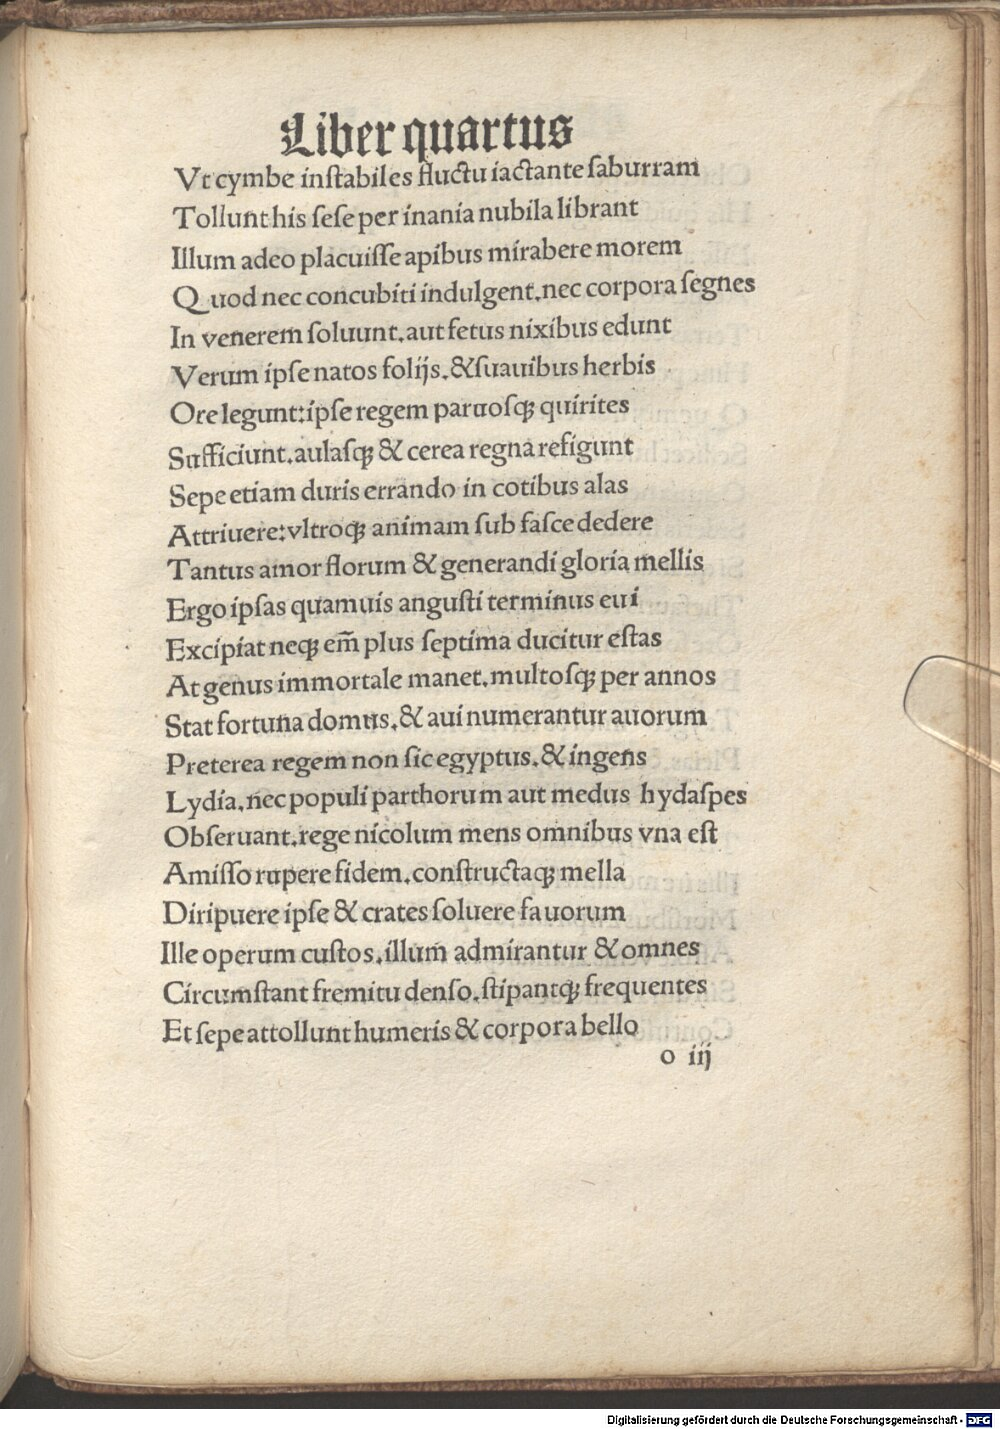 Liber quartus
Vt cymbe inſtabiles fluctu iactante ſaburram
Tollunt his ſeſe per inania nubila librant
Illum adeo placuiſſe apibus mirabere morem
Quod nec concubiti indulgent.nec corpora ſegnes
In venerem ſoluunt.aut fetus nixibus edunt
Verum ipſe natos folijs.&ſuauibus herbis
Ore legunt:ipſe regem paruoſqꝫ quirites
Sufficiunt.aulaſqꝫ & cerea regna refigunt
Sepe etiam duris errando in cotibus alas
Attriuere:vltroqꝫ animam ſub faſce dedere
Tantus amor florum & generandi gloria mellis
Ergo ipſas quamuis anguſti terminus eui
Excipiat neqꝫ em̃ plus ſeptima ducitur eſtas
At genus immortale manet.multoſqꝫ per annos
Stat fortuna domus.& aui numerantur auorum
Preterea regem non ſic egyptus.& ingens
Lydia.nec populi parthorum aut medus hydaſpes
Obſeruant.rege nicolum mens omnibus vna eſt
Amiſſo rupere fidem.conſtructaqꝫ mella
Diripuere ipſe & crates ſoluere fauorum
Ille operum cuſtos.illum̃ admirantur & omnes
Circumſtant fremitu denſo.ſtipantqꝫ frequentes
Et ſepe attollunt humeris & corpora bello
o iij
Digitalisierung gefördert durch die Deutsche Forschungsgemeinschaft - DFG